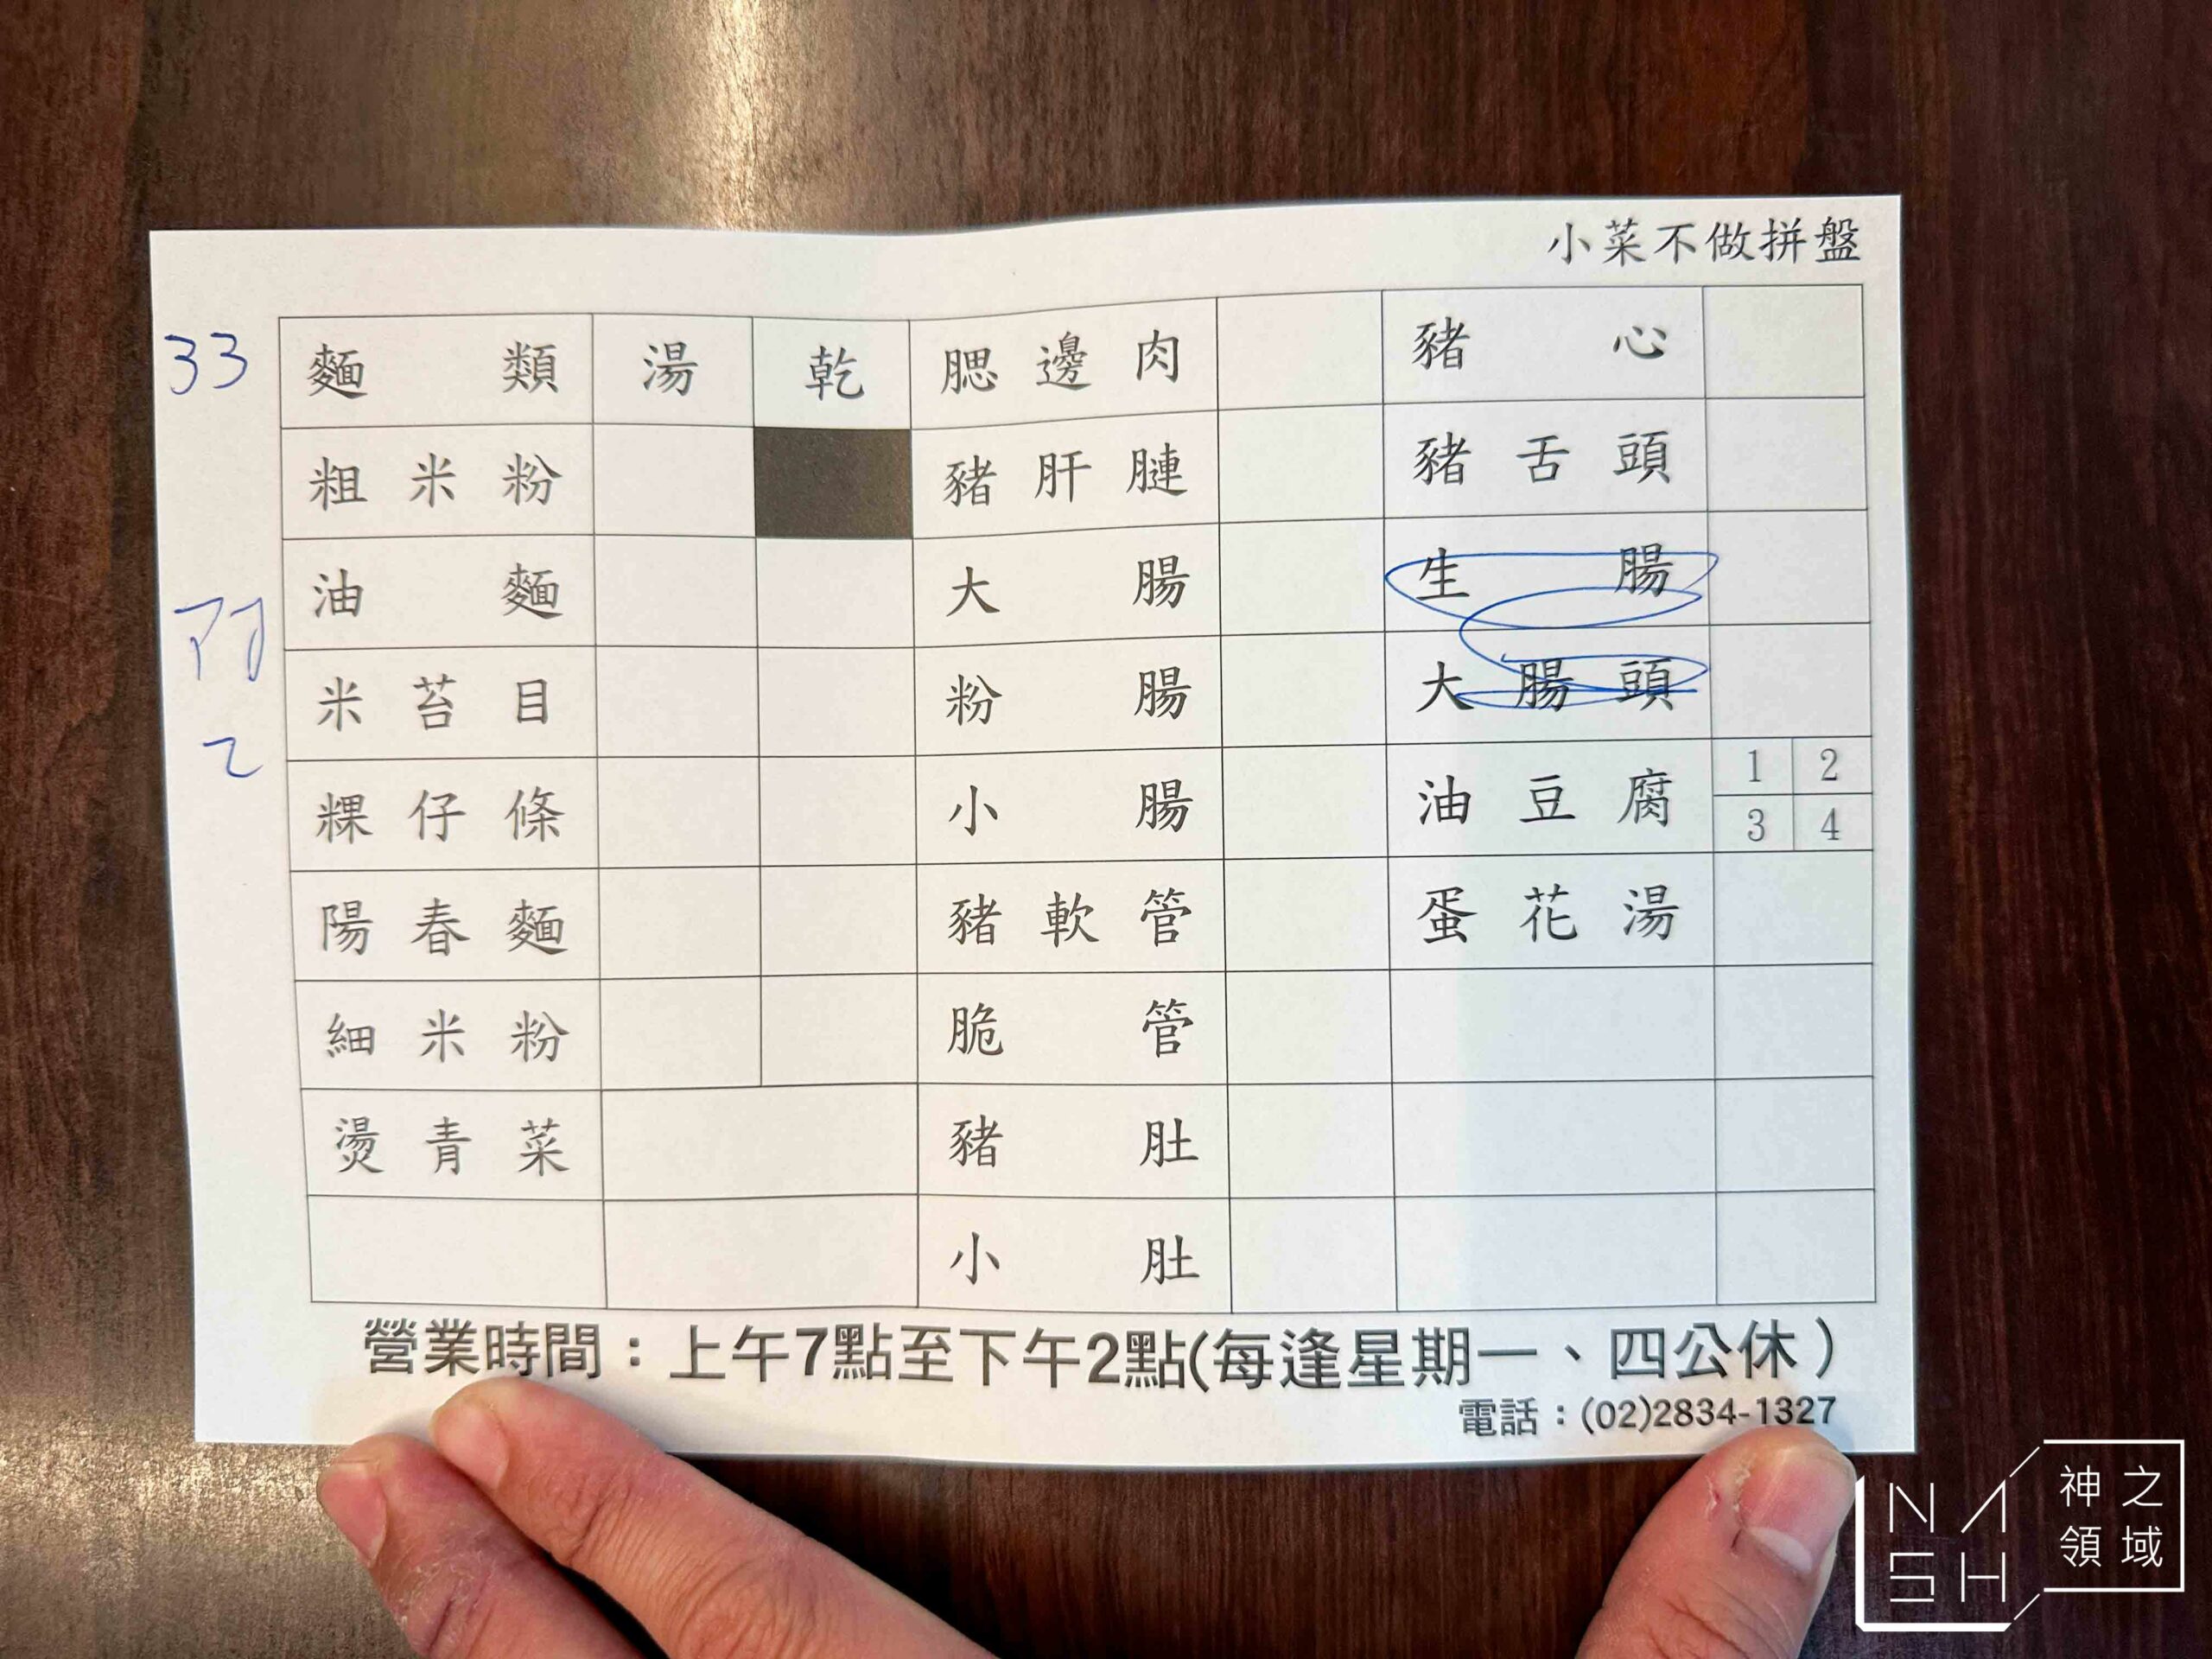 小菜不做拼盤
33
麵類 湯 乾 腮邊肉 豬心
粗米粉 豬肝膁 豬舌頭
油麵 大腸 生腸
米苔目 粉腸 大腸頭
2
粿仔條 小腸 油豆腐 1 2 3 4
陽春麵 豬軟管 蛋花湯
細米粉 脆管
燙青菜 豬肚
小肚
營業時間：上午7點至下午2點(每逢星期一、四公休)
電話：(02)2834-1327
NASH
神之
領域